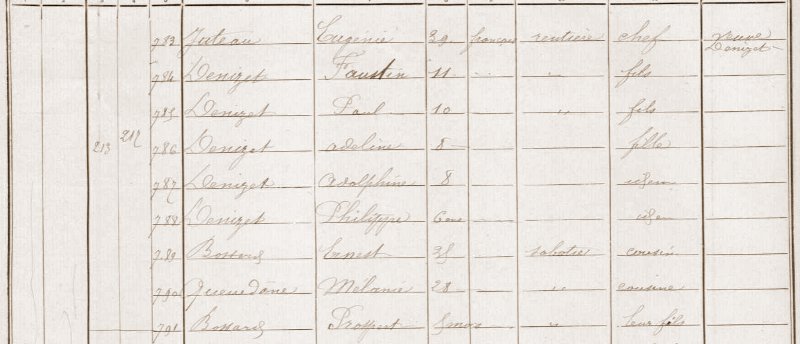 783 Juteau Eugenie 39 français rentière chef veuve Denizet
784 Denizet Faustin 11 " " fils
785 Denizet Paul 10 " fils
213 217 786 Denizet adeline 8 fille
787 Denizet adolphine 8 idem
788 Denizet Philippe 6 ans idem
789 Bossard Ernest 35 sabotier cousin
790 Queudane Mélanie 28 " cousine
791 Bossard Prospert 5 mois " leur fils